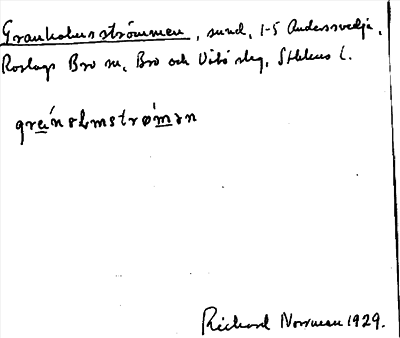 Granholmsströmmen, sund, 1-5 Andersvedja,
Roslags Bro sn, Bro och Vätö slg, Sthlms l.
grańsḷmstrǿmən
Rickard Norrman 1929.